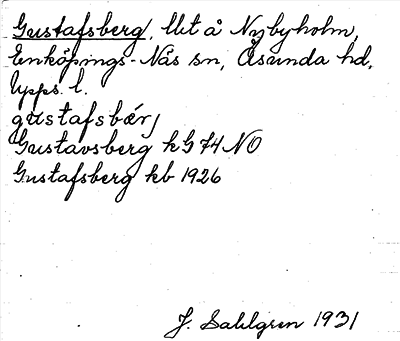 Gustafsberg, lht å Nybyholm,
Enköpings-Näs sn, Åsunda hd,
Upps. l.
gustafsbærj
Gustavsberg k G 74 NO
Gustafsberg kb 1926
J. Sahlgren 1931